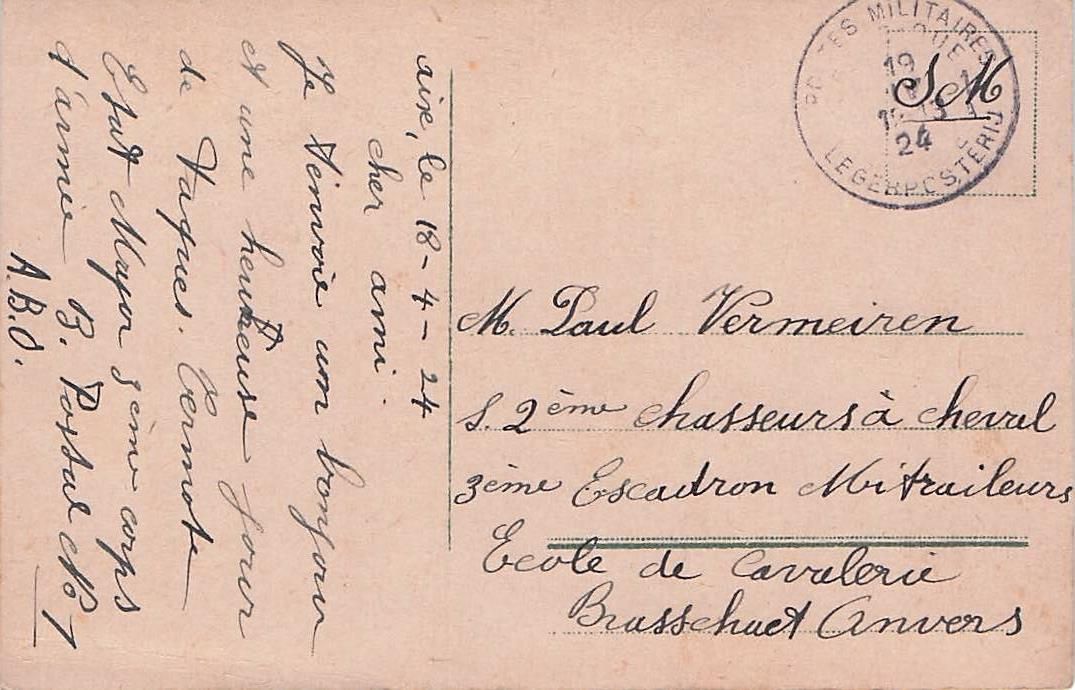 aixe, le 18-4-24
cher ami
Je t'envoie um bonjour
et une heureuse jour
de Paques. Cermote
Etat Major 3ème corps
d'armée B. Postal No 1
A.B.O.
POSTES MILITAIRES
19
24
LEGERPOSTERIJ
SM
M. Paul Vermeiren
S. 2ème chasseurs à cheval
3ème Escadron Mitraileurs
Ecole de Cavalerie
Brasschaet Anvers